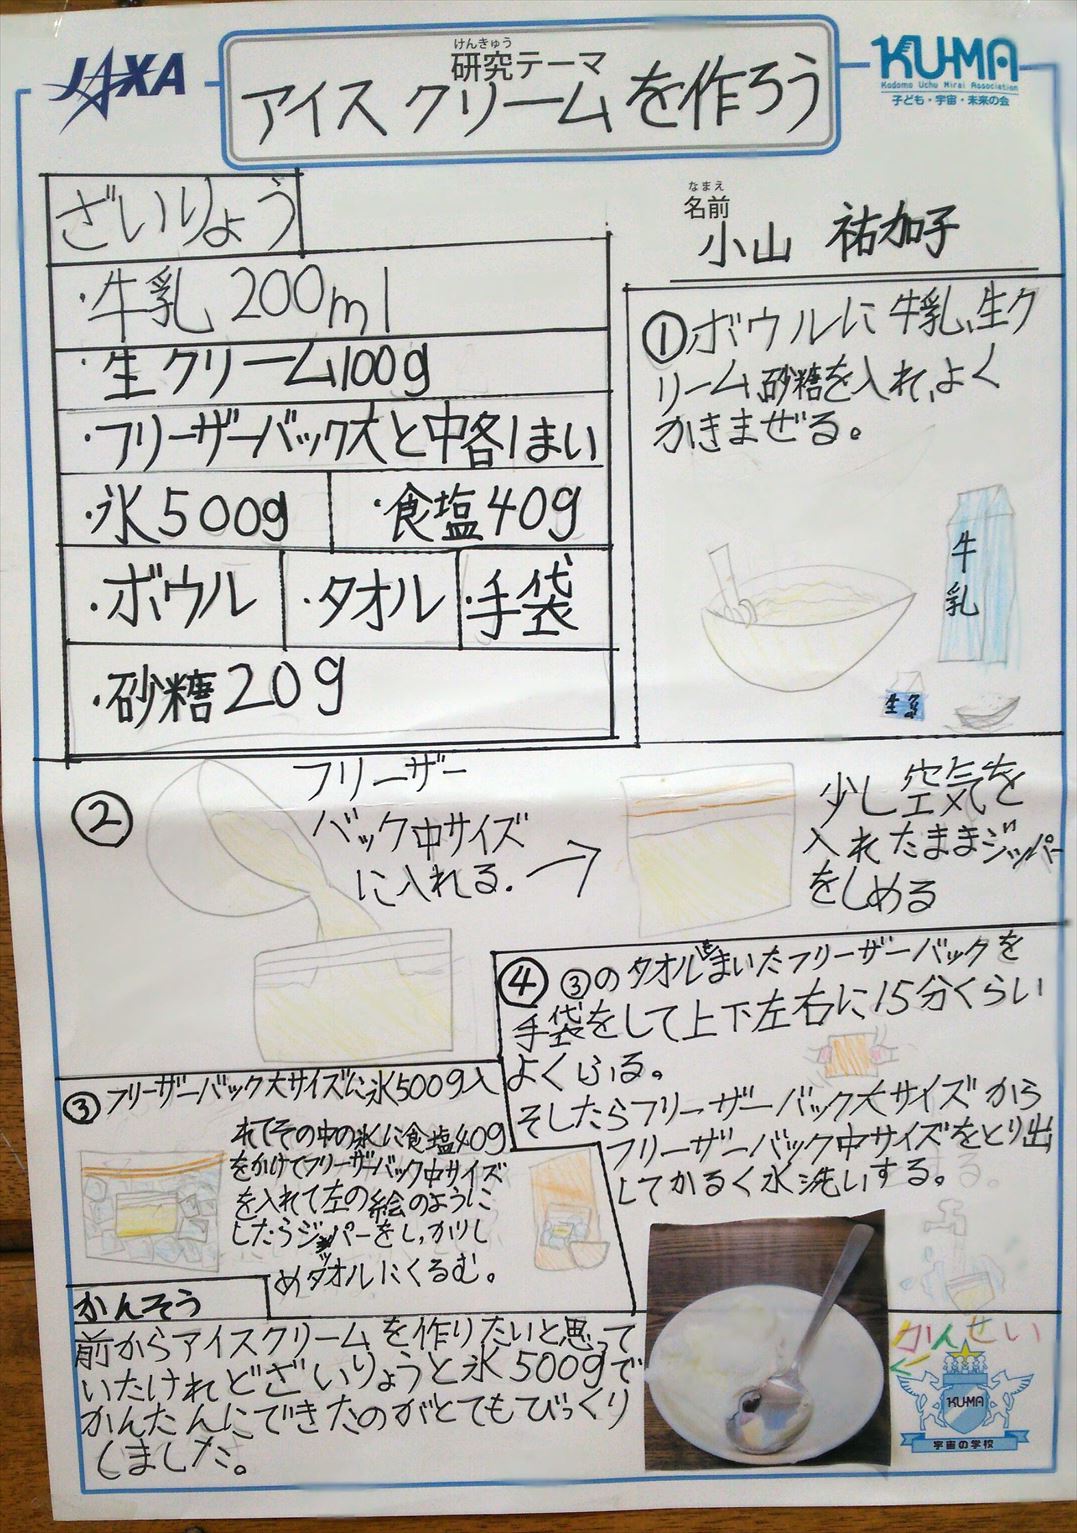 JAXA
けんきゅう
研究テーマ
アイスクリームを作ろう
KU-MA
Kodomo Uchu Mirai Association
子ども・宇宙・未来の会
なまえ
名前
小山 祐加子
ざいりょう
・牛乳 200ml
・生クリーム100g
・フリーザーバック大と中各1まい
・氷500g
・食塩40g
・ボウル
・タオル
・手袋
・砂糖20g
①ボウルに牛乳、生ク
リーム、砂糖を入れ、よく
かきまぜる。
牛
乳
②
フリーザー
バック中サイズ
に入れる.
→
少し空気を
入れたままジッパー
をしめる
③フリーザーバック大サイズに氷500g入
れてその中の氷に食塩40g
をかけてフリーザーバック中サイズ
を入れて左の絵のように
したらジッパーをし,かりし
めタオルにくるむ。
④ ③のタオルをまいたフリーザーバックを
手袋をして上下左右に15分くらい
よくふる。
そしたらフリーザーバック大サイズから
フリーザーバック中サイズをとり出
してかるく水洗いする。
かんそう
前からアイスクリームを作りたいと思って
いたけれどざいりょうと氷500gで
かんたんにできたのがとてもびっくり
しました。
かんせい
KU-MA
宇宙の学校